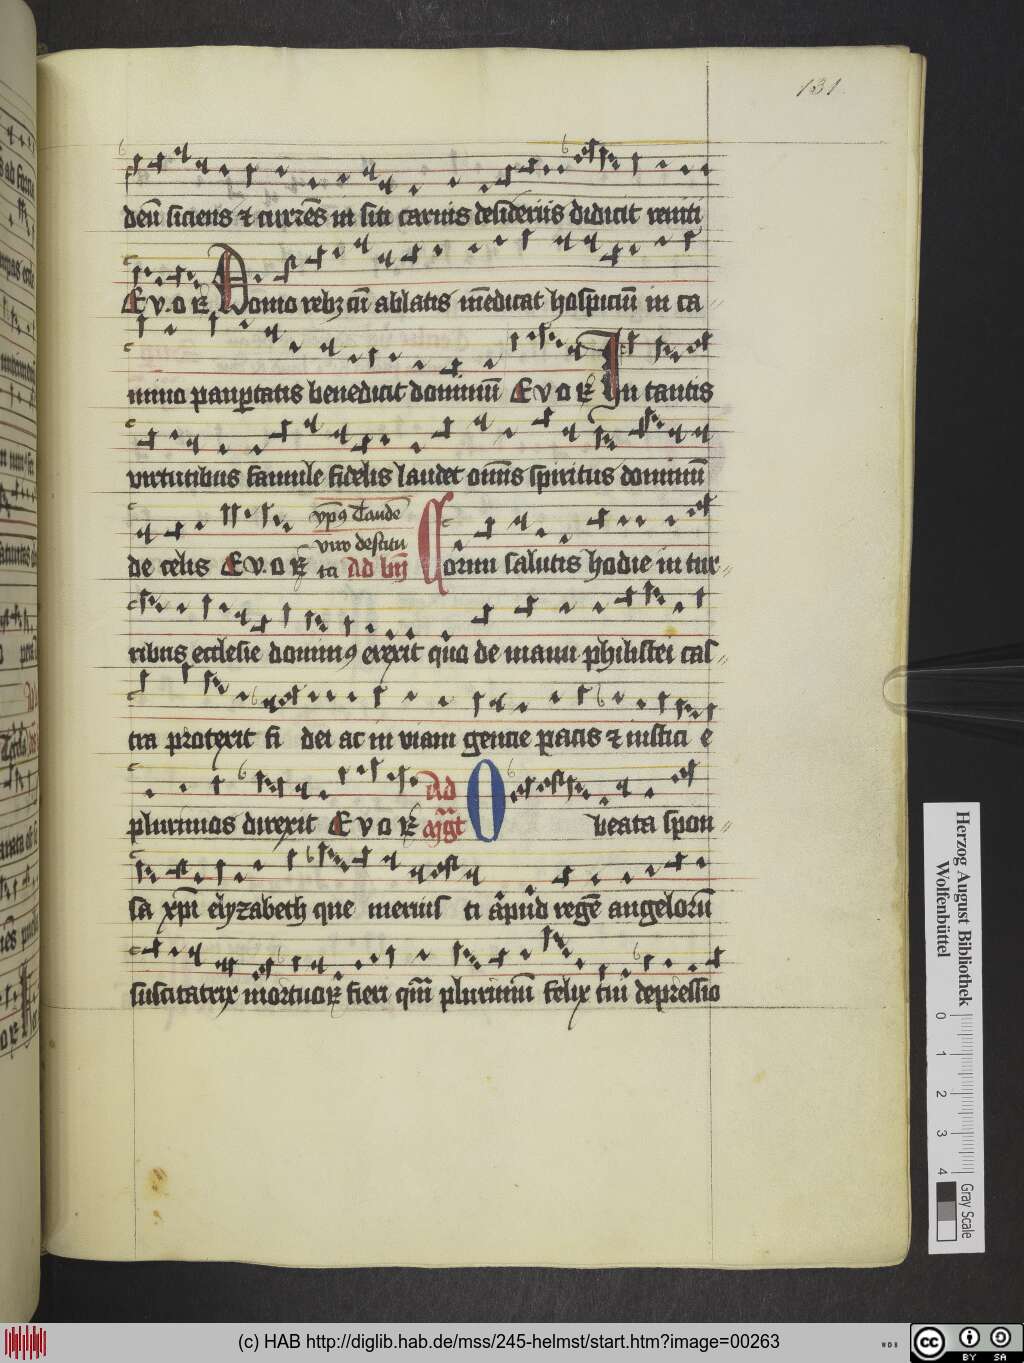 131.
deū siciens et currēs in siti carnis desideriis didicit reniti
E v o E Domo rebꝫ cū ablatis mēdicat hospiciū in ca
mino paupꝑtatis benedicit dominū E v o E In tantis
virtutibus famule fidelis laudet omīs spiritus dominū
de celis E v o E ypꝰ Gaude
viro destitu
ta Ad bn̄ Cornu salutis hodie in tur
ribus ecclesie dominꝰ erexit quo de manu philistei cas
tra proterit fi dei ac in viam gentie pacis et iustici e
plurimos direxit E v o E Ad
mg̅t O beata spon
sa xp̄i elyzabeth que meruis ti apud regē angelorū
suscitatrix mortuoꝝ fieri qm̄ plurimū felix tui depressio
Herzog August Bibliothek
Wolfenbüttel
0 1 2 3 4
Gray Scale
(c) HAB http://diglib.hab.de/mss/245-helmst/start.htm?image=00263
WDB
cc BY SA